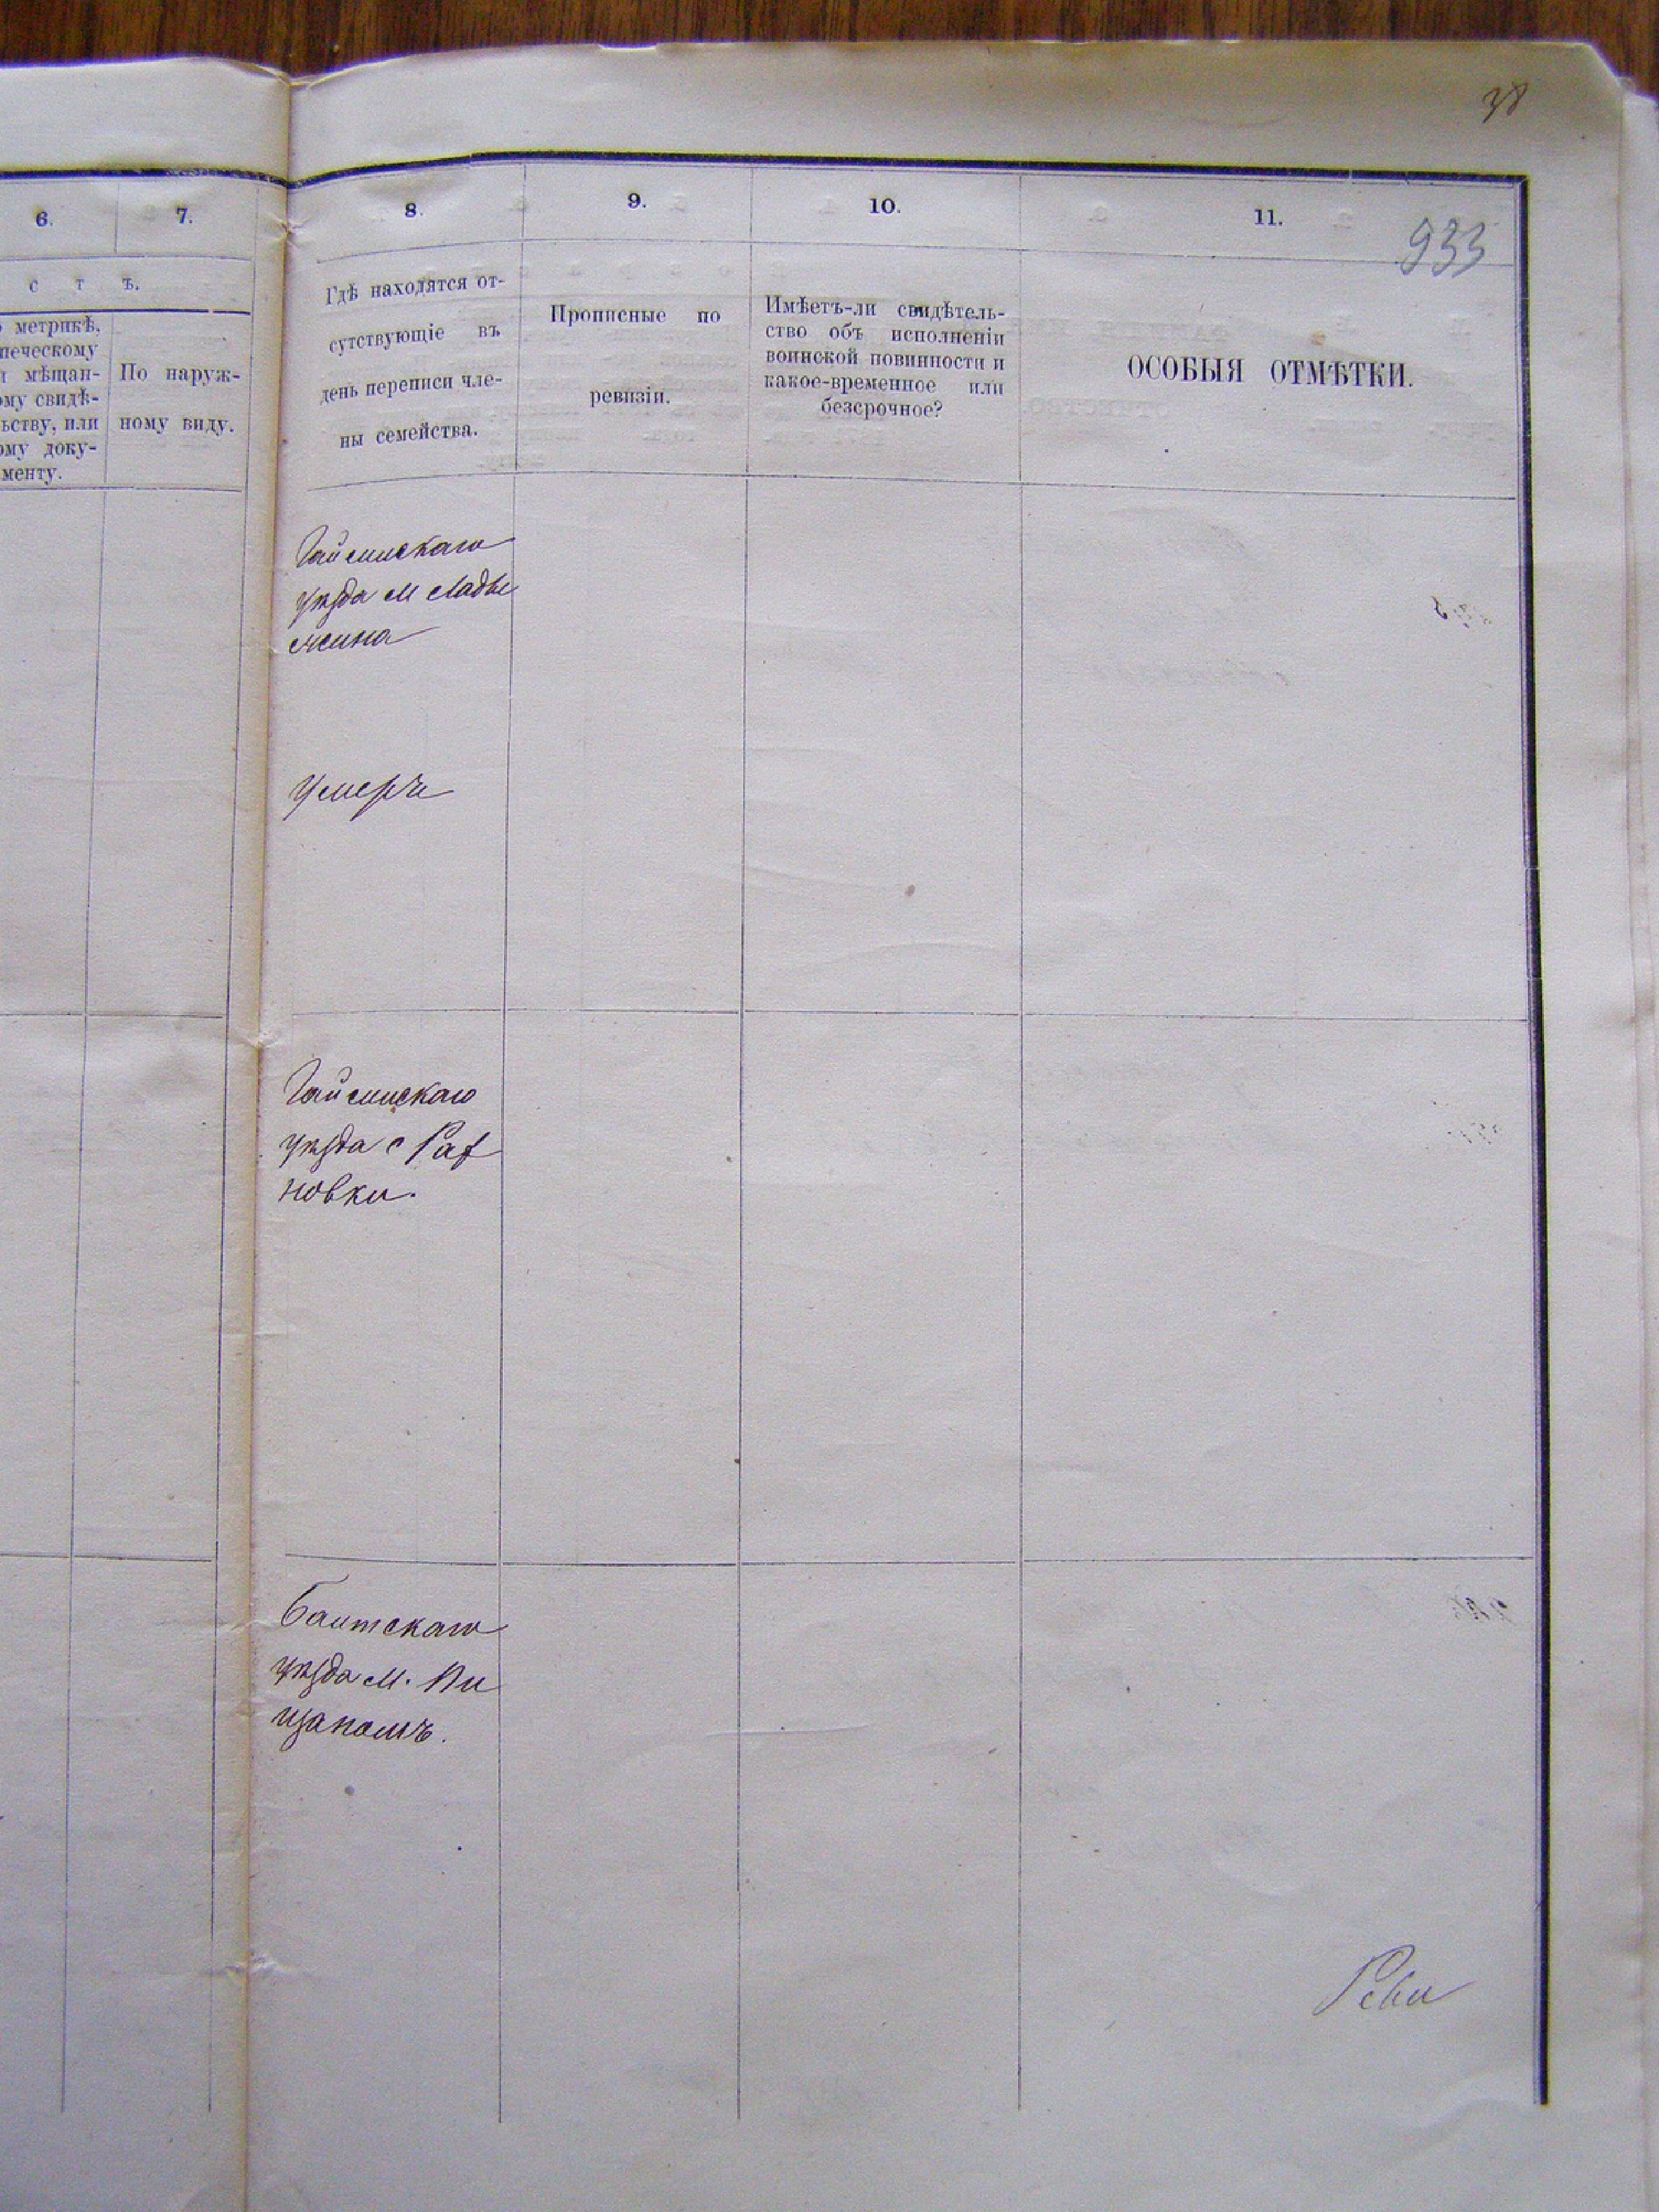 38
6.
7.
8.
9.
10.
11.
933
с т ъ.
метрикѣ,
печескому
мѣщан-
ому свидѣ-
ьству, или
ому доку-
менту.
По наруж-
ному виду.
Гдѣ находятся от-
сутствующіе въ
день переписи чле-
ны семейства.
Прописные по
ревизіи.
Имѣетъ-ли свидѣтель-
ство объ исполненіи
воинской повинности и
какое-временное или
безсрочное?
ОСОБЫЯ ОТМѢТКИ.
Гайсинскаго
уѣзда м Лады
жина
умеръ
Гайсинскаго
уѣзда с
новки.
Балтскаго
уѣзда м. Пи
щаномъ.